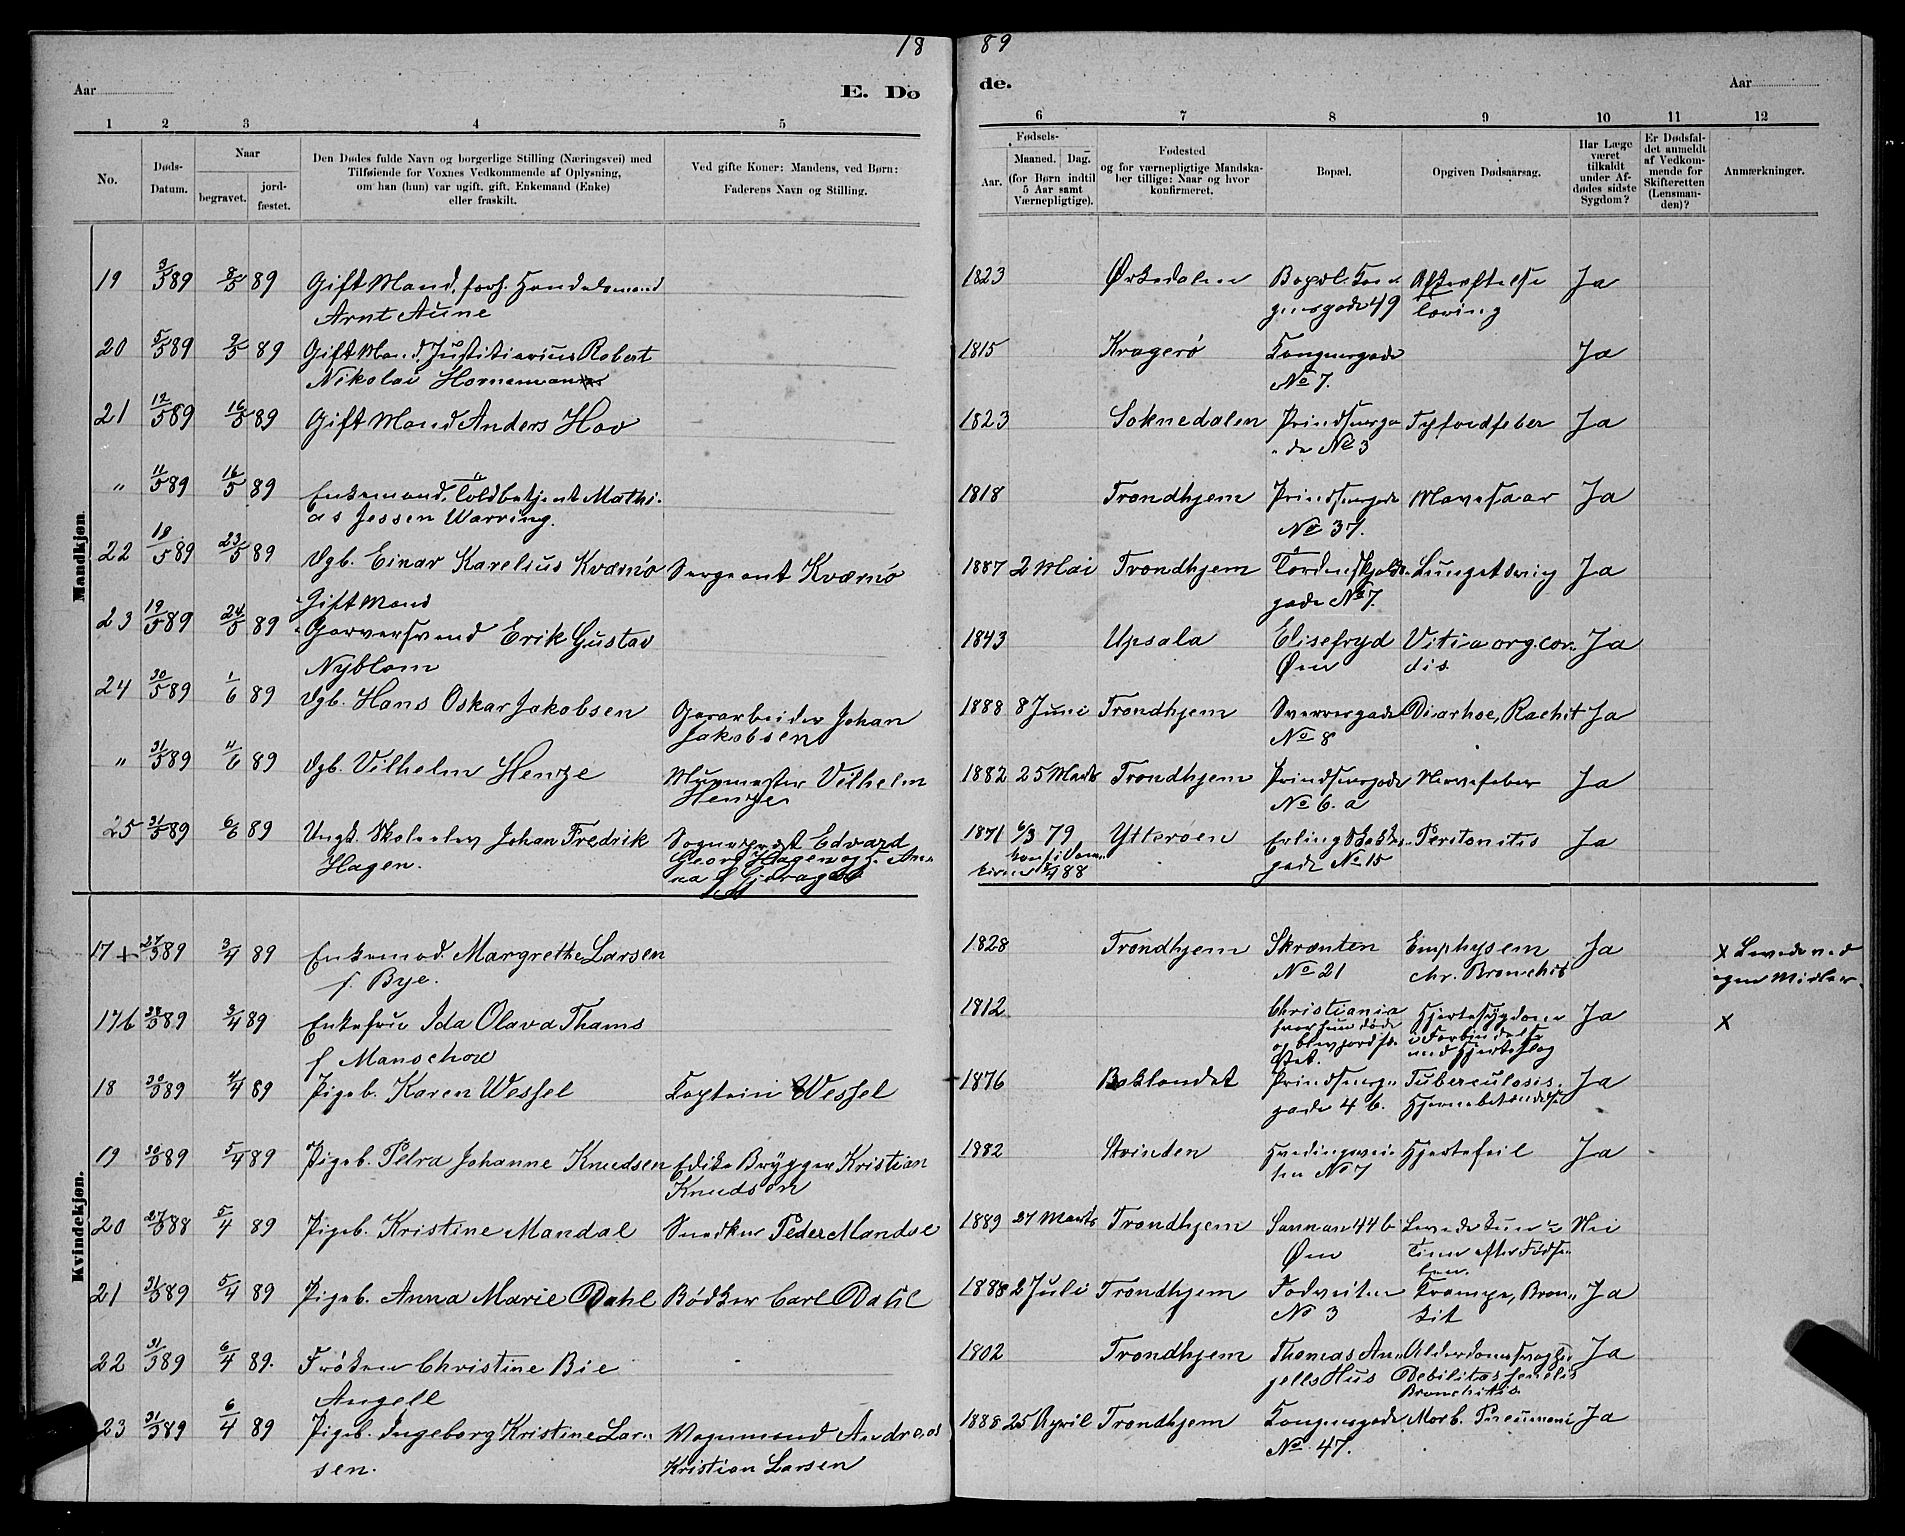 18 89
Aar
E. Dø
de.
Aar
1 2 3 4 5 6 7 8 9 10 11 12
No.
Døds-
Datum.
Naar
begravet.
jord-
fæstet.
Den Dødes fulde Navn og borgerlige Stilling (Næringsvei) med
Tilføiende for Voxnes Vedkommende af Oplysning,
om han (hun) var ugift, gift, Enkemand (Enke)
eller fraskilt.
Ved gifte Koner: Mandens, ved Børn:
Faderens Navn og Stilling.
Fødsels-
Aar.
Maaned. Dag.
(for Børn indtil
5 Aar samt
Værnepligtige).
Fødested
og for værnepligtige Mandska-
ber tillige: Naar og hvor
konfirmeret.
Bopæl.
Opgiven Dødsaarsag.
Har Læge
været
tilkaldt
under Af-
dødes sidste
Sygdom?
Er Dødsfal-
det anmeldt
af Vedkom-
mende for
Skifteretten
(Lensman-
den)?
Anmærkninger.
Mandkjøn.
19 3/5 89 8/5 89 Gift Mand, forh. Handelsmand 1823 Ørkedalen Ja
Arnt Aune gensgade 49
20 5/5 89 9/5 89 Gift Mand, Justitiarius Robert 1815 Kragerø Kongensgade Ja
Nikolai Hornemann No 7.
21 12/5 89 16/5 89 Gift Mand Anders Hov 1823 Soknedalen Prindsensga Tyfoidfeber Ja
de No 3
" 11/5 89 16/5 89 Enkemand, Toldbetjent Mathi- 1818 Trondhjem Prindsensgade Mavesaar Ja
as Jessen Warring. No 37.
22 18/5 89 23/5 89 Ugb. Einar Karelius Kværnø Sergeant Kværnø 1887 2 Mai Trondhjem Tordenskjolds- Ja
gade No 7.
Gift Mand
23 19/5 89 24/5 89 Garversvend Erik Gustav 1843 Upsala Elisefryd Vitia org. cor- Ja
Nyblom Øen dis
24 30/5 89 1/6 89 Ugb. Hans Oskar Jakobsen Gasarbeider Johan 1888 8 Juni Trondhjem Sverresgade Diarhoe, Rachit Ja
Jakobsen No 8
" 31/5 89 4/6 89 Ugb. Vilhelm Henze Murmester Vilhelm 1882 25 Marts Trondhjem Prindsensgade Nervefeber Ja
Henze No 6. a
25 31/5 89 6/6 89 Ungk. Skoleelev Johan Fredrik Sogneprest Edvard 1871 6/3 79 Ytterøen Erling Skakkes- Peritonitis Ja
Hagen. Georg Hagen og F. An- gade No 15
na f. Gjerager 88
Kvindekjøn.
17 + 27/3 89 3/4 89 Enkemad. Margrethe Larsen 1828 Trondhjem Skrænten Emphysem Ja x Levede ved
f. Bye. No 21 chr. Bronchit egne Midler.
17b 28/3 89 3/4 89 Enkefru Ida Olava Thams 1812 Christiania Hjertesygdom Ja x
f. Manschow hvor hun døde i Forbindelse
og blev jordfæ- med Hjerteslag
stet.
18 30/3 89 4/4 89 Pigeb. Karen Wessel Captein Wessel 1876 Baklandet Prindsens- Tuberculosis. Ja
gade 4 b. Hjernebetændelse
19 30/3 89 5/4 89 Pigeb. Petra Johanne Knudsen Edike Brygger Kristian 1882 Strinden Hjertefeil Ja
Knudsen No 7
20 27/3 88 5/4 89 Pigeb. Kristine Mandal Snedker Peder Mandal 1889 27 Marts Trondhjem Sannan 44 b Levede kun 12 Nei
Øen Timer efter Fødse-
len.
21 31/3 89 5/4 89 Pigeb. Anna Marie Dahl Bødker Carl Dahl 1888 2 Juli Trondhjem Krampe, Bron- Ja
No 3 kit
22 31/3 89 6/4 89. Frøken Christine Bie 1802 Trondhjem Thomas An- Alderdomssvaghed Ja
Angell gells Hus Debilitas senilis
Bronchitis
23 31/3 89 6/4 89 Pigeb. Ingeborg Kristine Lar- Vognmand Andreas 1888 25 April Trondhjem Kongensgade Morb. Pneumoni Ja
sen. Kristian Larsen No 47.